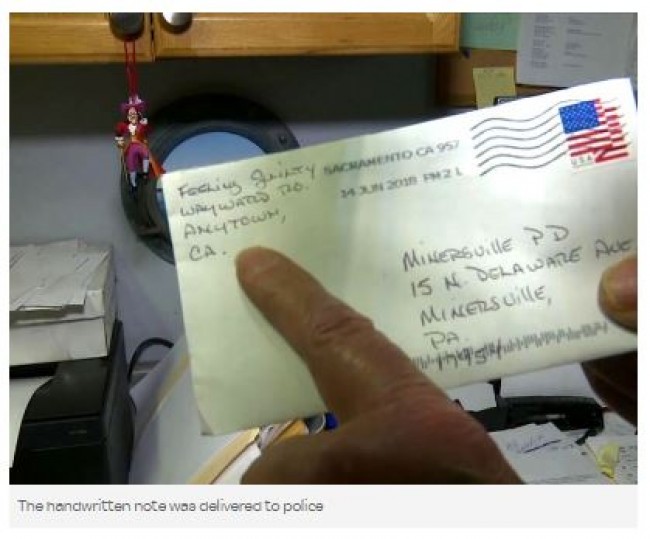 FEELING GUILTY
WAYWARD RD.
ANYTOWN,
CA.
SACRAMENTO CA 957
14 JUN 2018 PM 2 L
USA
MINERSVILLE PD
15 N. DELAWARE AVE
MINERSVILLE,
PA.
17954
The handwritten note was delivered to police